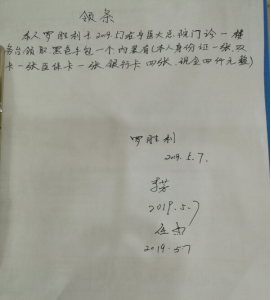 领条
本人罗胜利于2019.5.7在华医大总院门诊一楼
台领取黑色手包一个内里有(本人身份证一张.双
卡一张医保卡一张.银行卡四张.现金四仟元整)
罗胜利
2019.5.7.
2019.5.7
2019.5.7